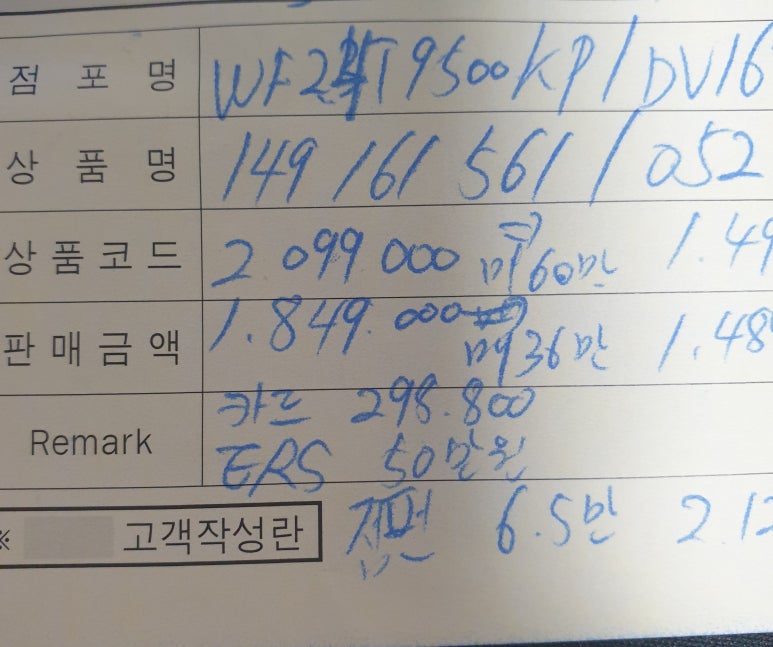 점 포 명 WF24T9500KP / DV16
상 품 명 149 161 561 / 052
상품코드 2.099.000 ⇒ 1.49
60만
판매금액 1.849.000 1.48
36만
Remark 카드 298.800
ERS 50만원
※ 고객작성란 6.5만 2.12